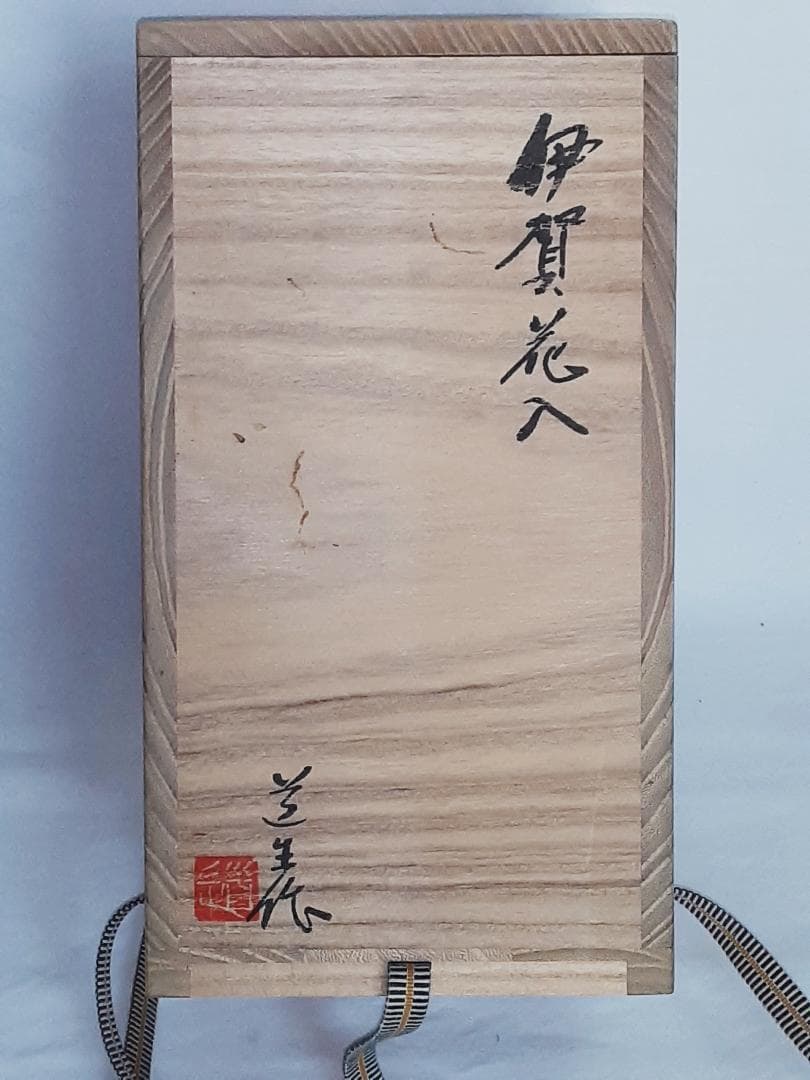 伊賀花入
道生作